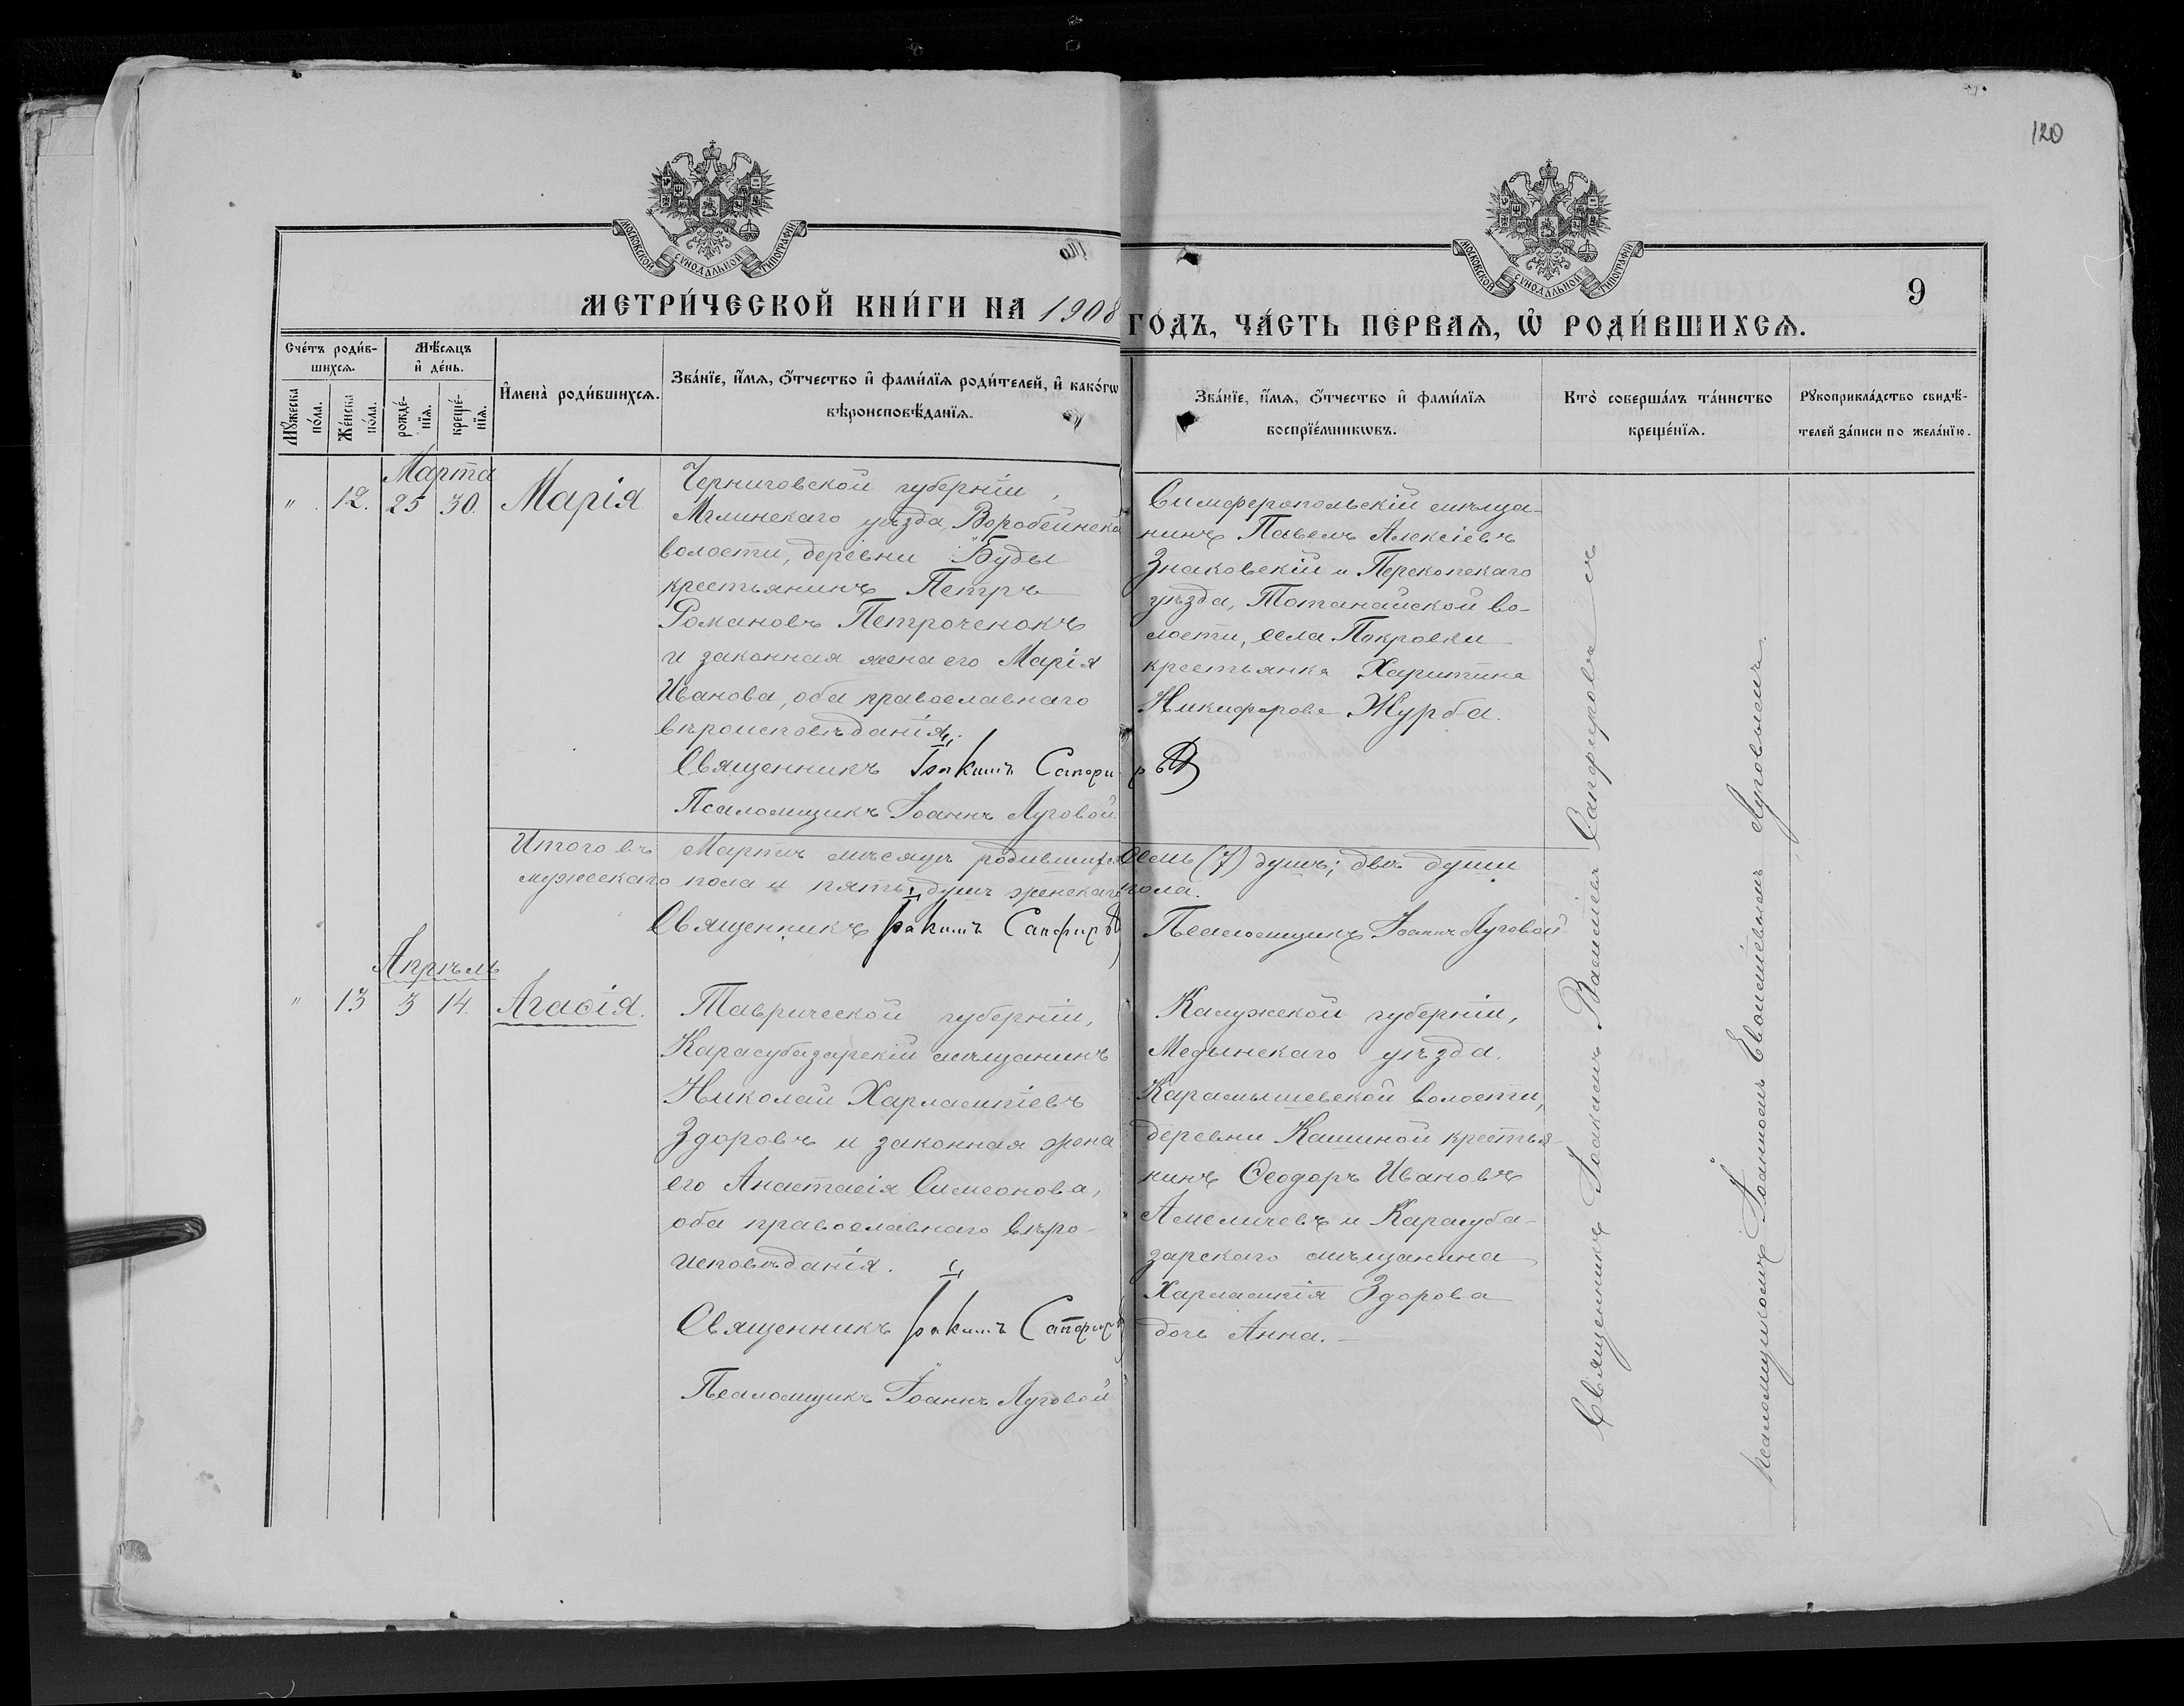 120
МОСКОВСКОЙ СѴНОДАЛЬНОЙ ТИПОГРАФІИ
МОСКОВСКОЙ СѴНОДАЛЬНОЙ ТИПОГРАФІИ
9
МЕТРИ́ЧЕСКОЙ КНИ́ГИ НА 1908
ГО́ДЪ, ЧА́СТЬ ПЕ́РВАѦ, Ѡ҆ РОДИ́ВШИХСѦ.
Сче́тъ роди́в-
шихсѧ.
Мꙋ́жеска по́ла.
Же́нска по́ла.
Мѣ́сѧцъ
и҆ де́нь.
рожде́-нїѧ.
креще́-нїѧ.
И҆мена̀ роди́вшихсѧ.
Зва́нїе, и҆́мѧ, ѻ҆́тчество и҆ фами́лїѧ роди́телей, и҆ како́гѡ
вѣроисповѣ́данїѧ.
Зва́нїе, и҆́мѧ, ѻ҆́тчество и҆ фами́лїѧ
воспрїе́мникѡвъ.
Кто̀ соверша́лъ та́инство
креще́нїѧ.
Рꙋкоприкла́дство свидѣ́-
телей за́писи по жела́нїю.
Марта
" 12. 25 30. Марія
Черниговской губерніи,
Мглинскаго уѣзда, Воробейнской
волости, деревни Буды
крестьянинъ Петръ
Романовъ Петроченокъ
и законная жена его Марія
Иванова, оба православнаго
вѣроисповѣданія.
Священникъ Іоакимъ Сапфировъ
Псаломщикъ Іоаннъ Луговой
Симферопольскій мѣща-
нинъ Павелъ Алексіевъ
Знаковскій и Перекопскаго
уѣзда, Тотанайской во-
лости, села Покровки
крестьянка Харитина
Никифорова Журба.
Итого въ Мартѣ мѣсяцѣ родившихся семь (7) душъ; двѣ души
мужескаго пола и пять душъ женскаго пола.
Священникъ Іоакимъ Сапфировъ Псаломщикъ Іоаннъ Луговой
Апрѣль
" 13 3 14. Агаѳія.
Таврической губерніи,
Карасубазарскій мѣщанинъ
Николай Харлампіевъ
Здоровъ и законная жена
его Анастасія Симеонова,
оба православнаго вѣро-
исповѣданія.
Священникъ Іоакимъ Сапфировъ
Псаломщикъ Іоаннъ Луговой
Калужской губерніи,
Медынскаго уѣзда.
Карамышевской волости,
деревни Кашиной крестья-
нинъ Ѳеодоръ Ивановъ
Амеличевъ и Карасуба-
зарскаго мѣщанина
Харлампія Здорова
дочь Анна.
Священникъ Іоакимъ Василіевъ Сапфировъ съ
псаломщикомъ Іоанномъ Евсигніевымъ Луговымъ.